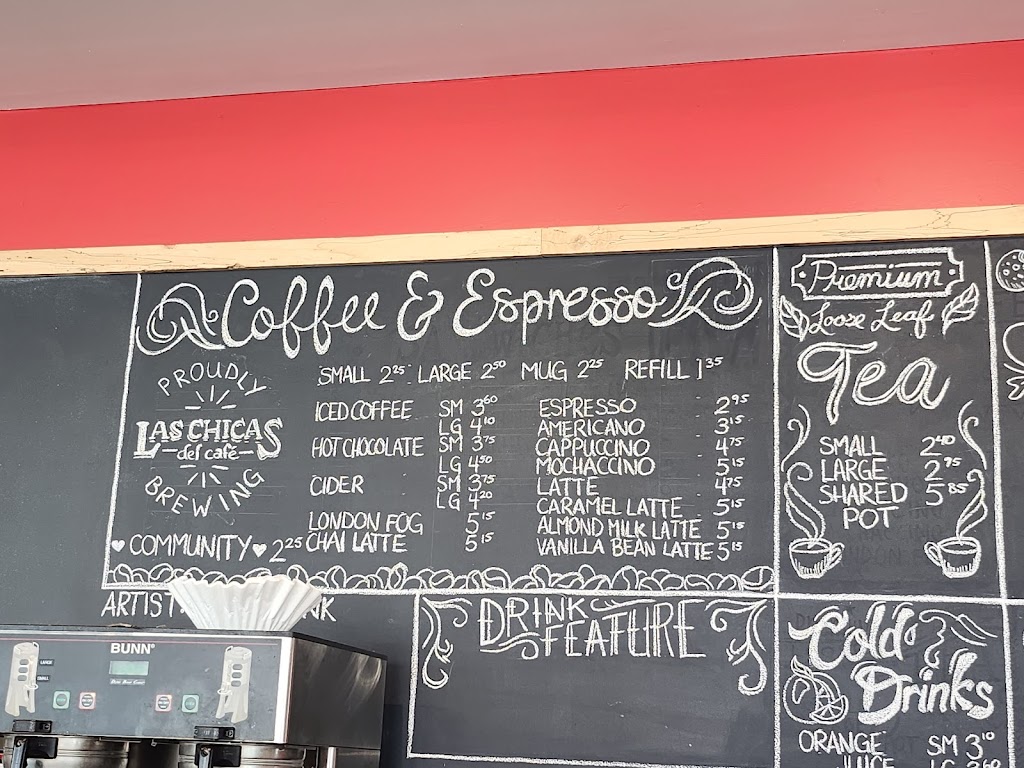 Coffee & Espresso
SMALL 2.25 LARGE 2.50 MUG 2.25 REFILL 1.35
PROUDLY
LAS CHICAS
del café
BREWING
♥COMMUNITY♥ 2.25
ICED COFFEE SM 3.60
LG 4.10
HOT CHOCOLATE SM 3.75
LG 4.50
CIDER SM 3.75
LG 4.20
LONDON FOG 5.15
CHAI LATTE 5.15
ESPRESSO 2.95
AMERICANO 3.15
CAPPUCCINO 4.75
MOCHACCINO 5.15
LATTE 4.75
CARAMEL LATTE 5.15
ALMOND MILK LATTE 5.15
VANILLA BEAN LATTE 5.15
Premium
Loose Leaf
Tea
SMALL 2.40
LARGE 2.75
SHARED 5.85
POT
ARTIST
DRINK
FEATURE
Cold
Drinks
ORANGE SM 3.10
JUICE LG 3.60
BUNN